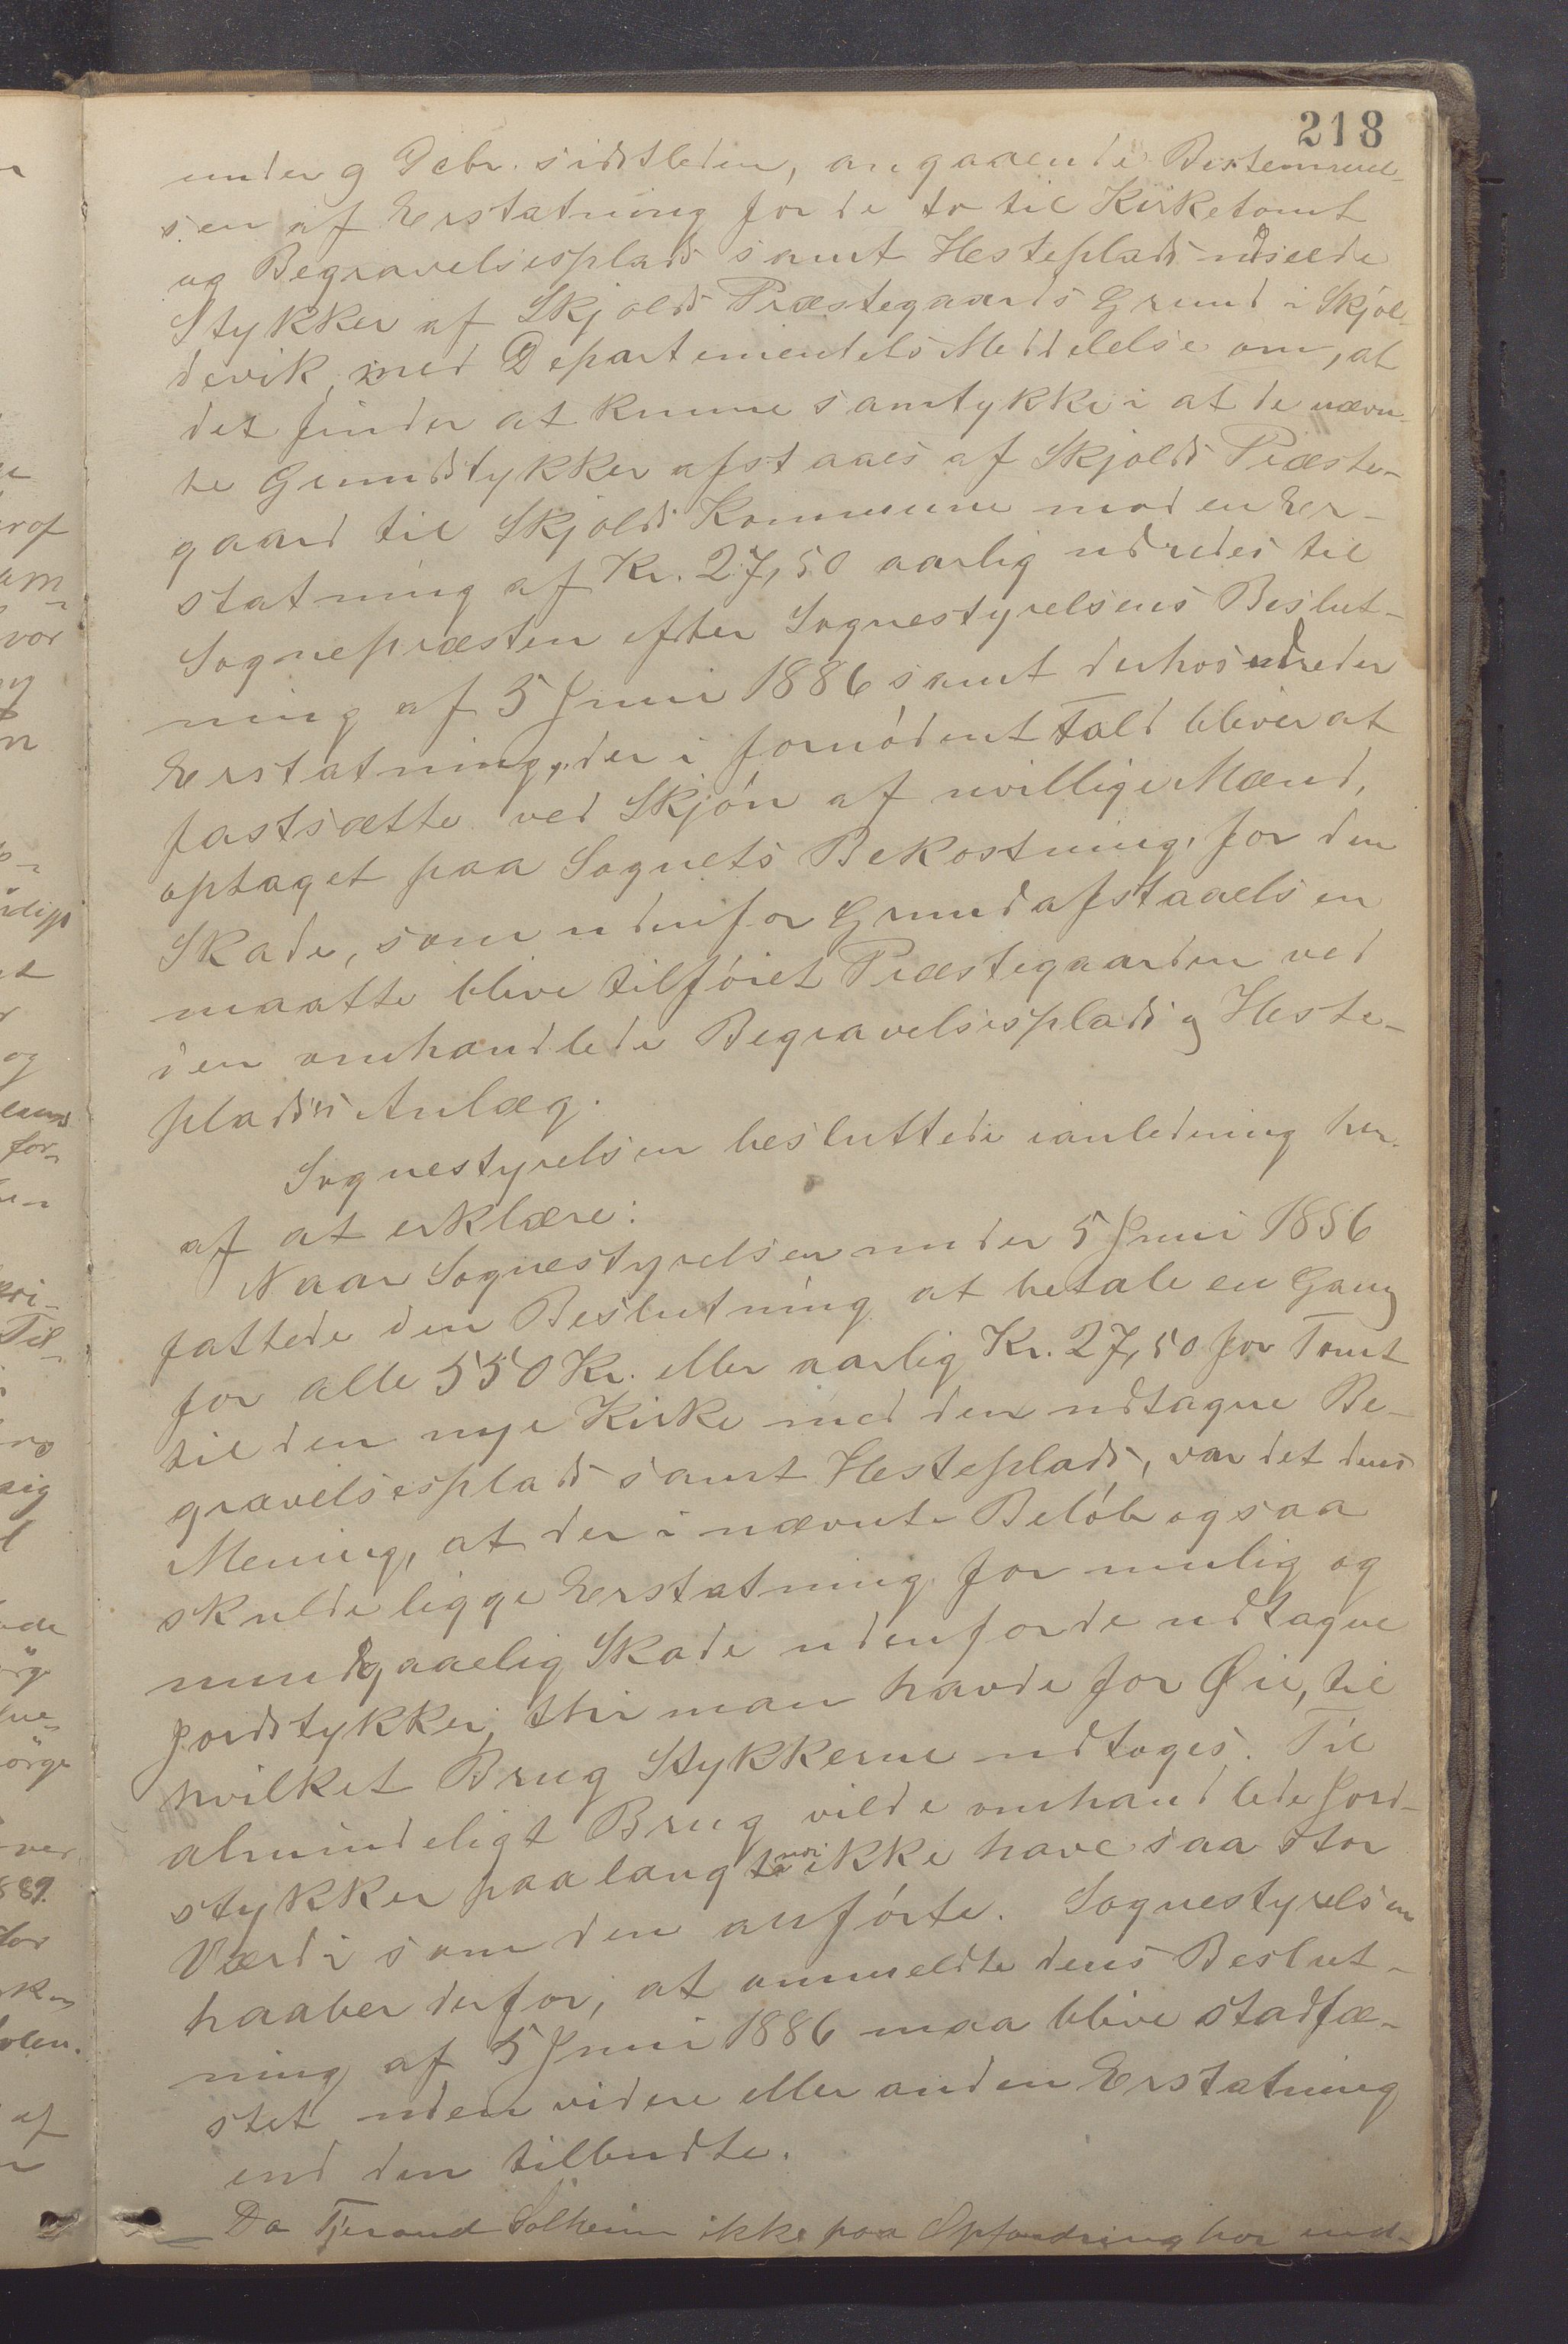 218
under 9 Debr. sidstleden, angaaende Bestemmel-
sen af Erstatning for de to til Kirketomt
og Begravelsesplads samt Hesteplads udseede
Stykker af Skjolds Præstegaards Grund i Skjol-
devik, med Departementets Meddelelse om, at
det finder at kunne samtykke i at de nævn-
te Grundstykker afstaaes af Skjolds Præste-
gaard til Skjolds Kommune mod en Er-
statning af Kr. 27,50 aarlig udredes til
Sognepræsten efter Sognestyrelsens Beslut-
ning af 5 Juni 1886 samt derhos udreder
Erstatning, der i fornødent Fald bliver at
fastsætte ved Skjøn af uvillige Mænd,
optaget paa Sognets Bekostning, for den
Skade, som udenfor Grundafstaaelsen
maatte blive tilføiet Præstegaarden ved
den omhandlede Begravelsesplads og Heste-
pladses Anlæg.
Sognestyrelsen besluttede ianledning her-
af at erklære:
Naar Sognestyrelsen under 5 Juni 1886
fattede den Beslutning at betale en Gang
for alle 550 Kr. eller aarlig Kr. 27,50 for Tomt
til den nye Kirke med den udtagne Be-
gravelsesplads samt Hesteplads, var det dens
Mening, at der i nævnte Beløb ogsaa
skulde ligge Erstatning for mulig og
uundgaaelig Skade udenfor de udtagne
Jordstykker, thi man havde for Øie, til
hvilket Brug Stykkerne udtoges. Til
almindeligt Brug vilde omhandlede Jord-
stykker paa langt nær ikke have saa stor
Værdi som den anførte. Sognestyrelsen
haaber derfor, at anmeldte dens Beslut-
ning af 5 Juni 1886 maa blive stadfæ-
stet uden videre eller anden Erstatning
end den tilbudte.
Da Tjerand Solheim ikke paa Opfordring har ind-